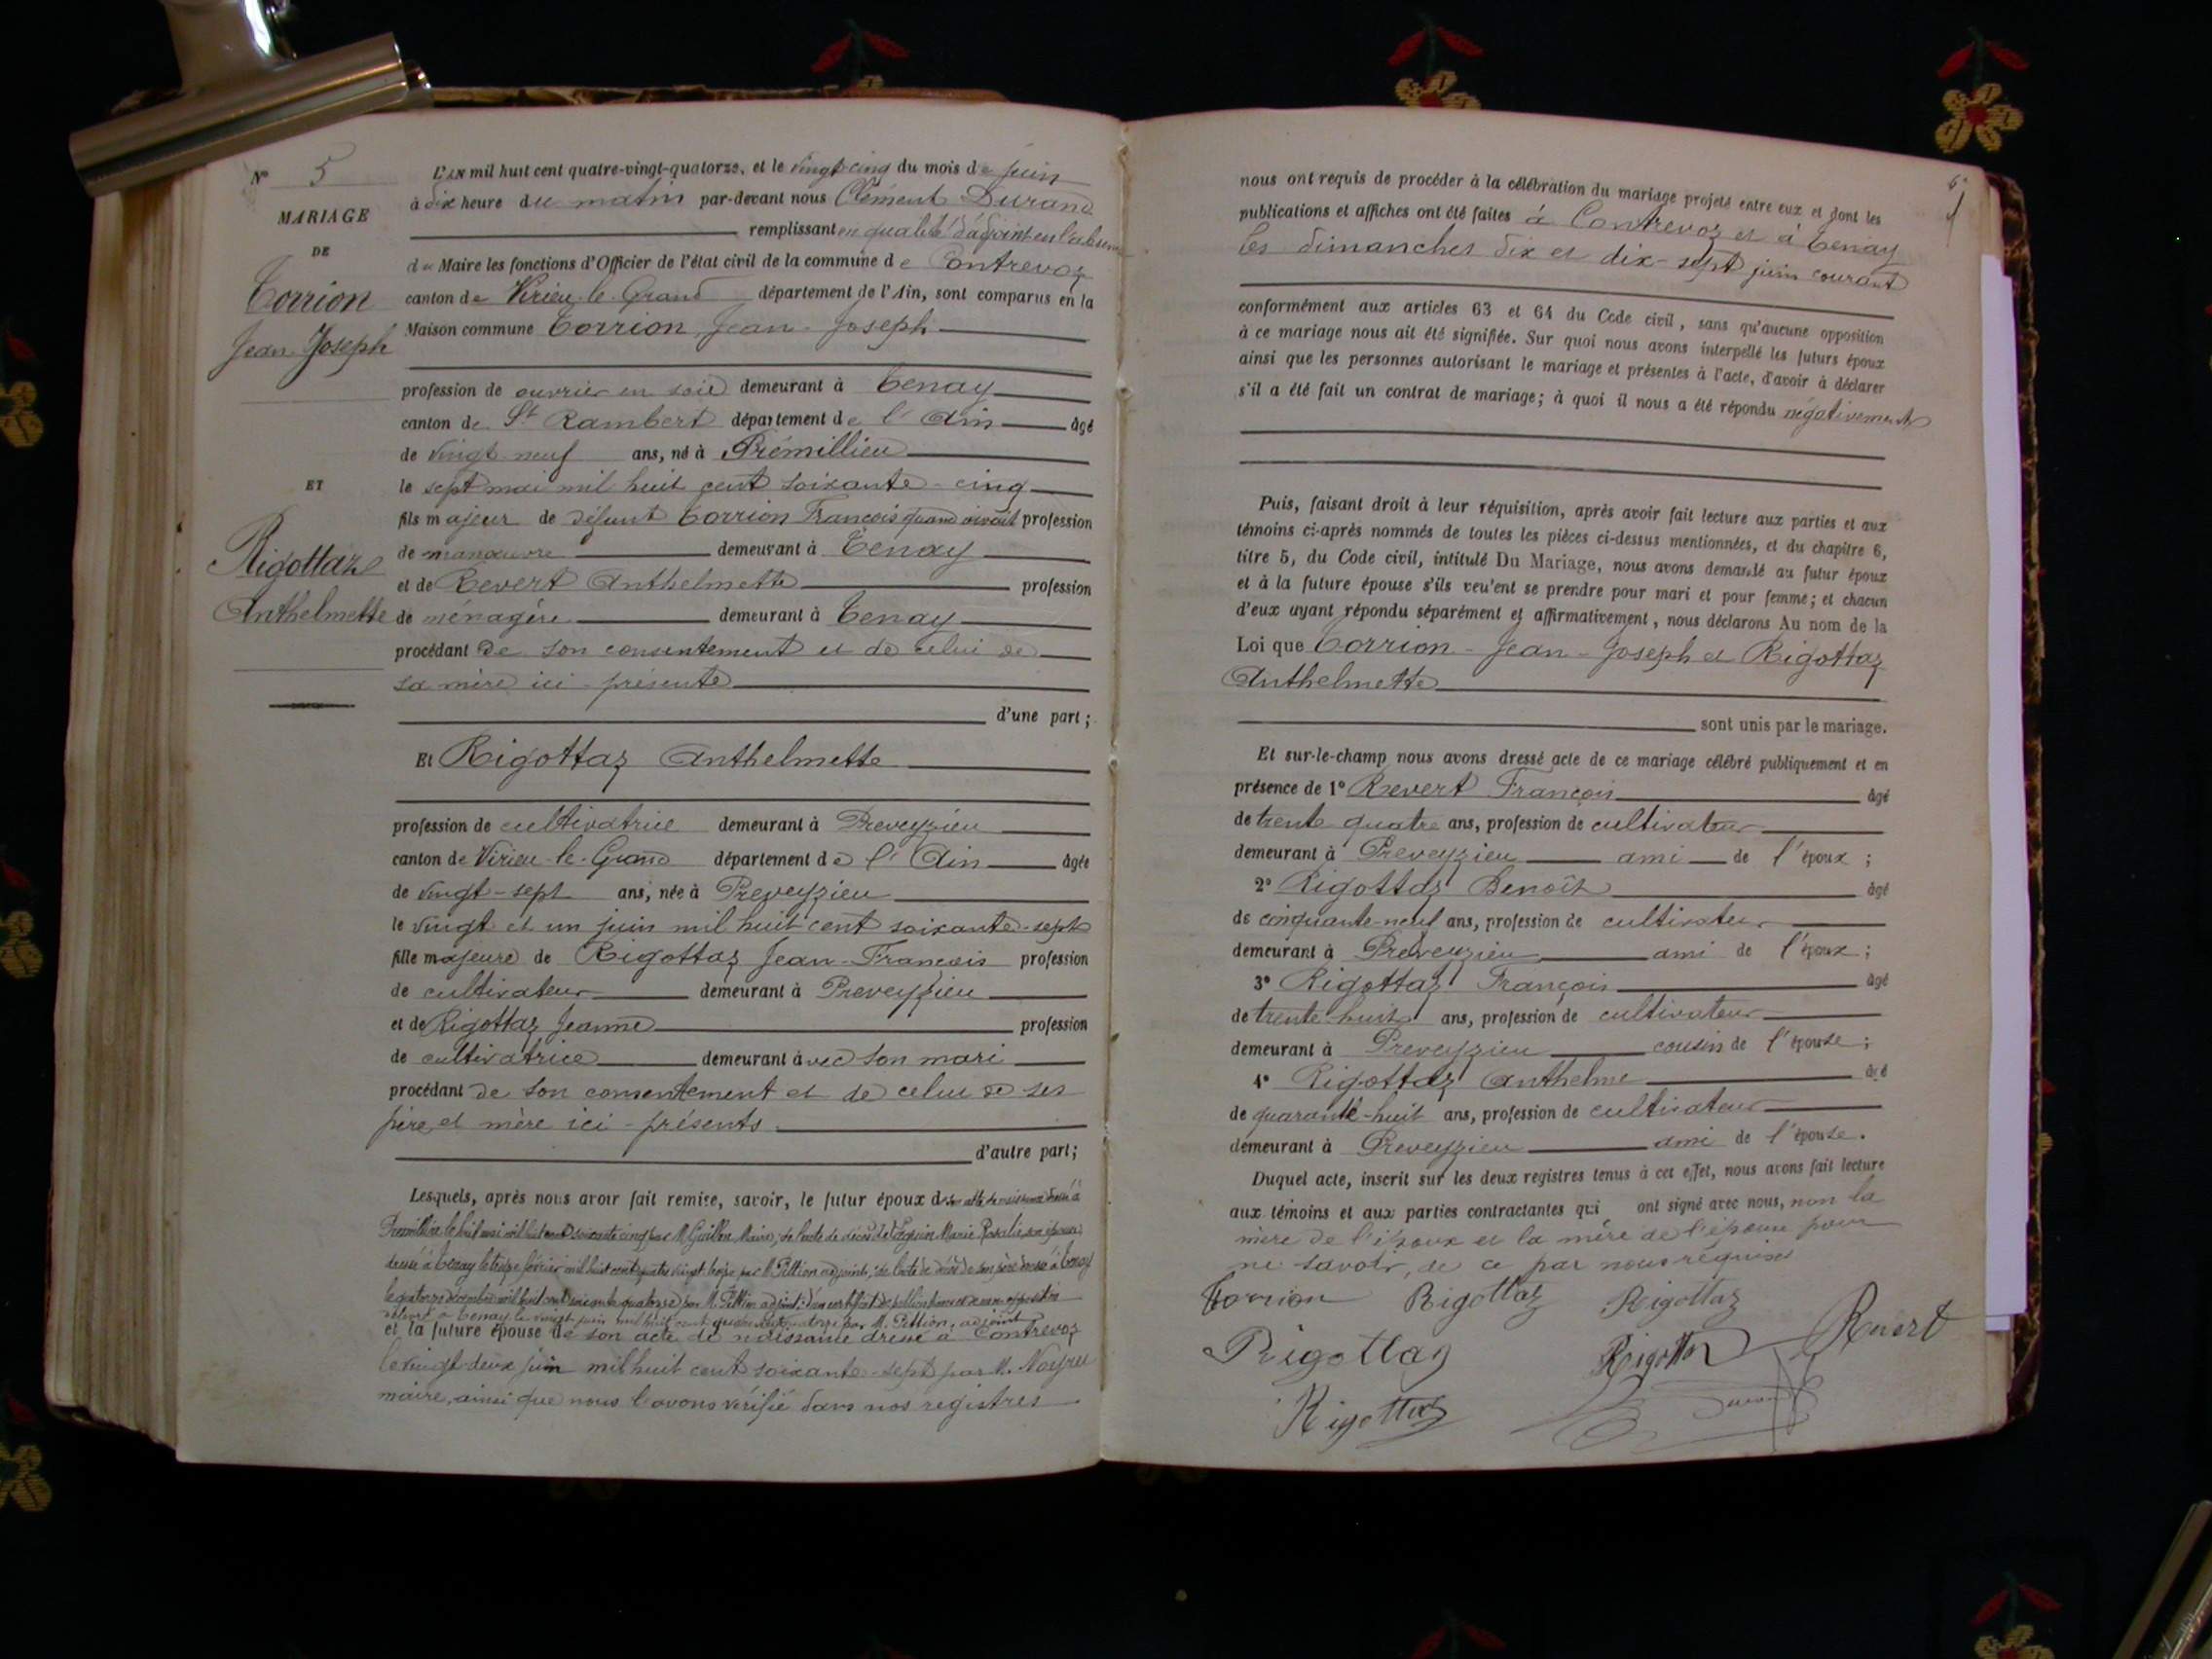 N° 5
MARIAGE
DE
Torrion
Jean Joseph
ET
Rigottaz
Anthelmette
L'an mil huit cent quatre-vingt-quatorze, et le vingt-cinq du mois de juin
à dix heure du matin par-devant nous Clément Durand
remplissant en qualité d'adjoint en l'absence
du Maire les fonctions d'Officier de l'état civil de la commune de Contrevoz
canton de Virieu-le-Grand département de l'Ain, sont comparus en la
Maison commune Torrion Jean-Joseph
profession de ouvrier en soie demeurant à Tenay
canton de St Rambert département de l'Ain âgé
de vingt-neuf ans, né à Prémillieu
le sept mai mil huit cent soixante-cinq
fils majeur de défunt Torrion François quand vivait profession
de manœuvre demeurant à Tenay
et de Revert Anthelmette profession
de ménagère demeurant à Tenay
procédant de son consentement et de celui de
sa mère ici-présente
d'une part;
Et Rigottaz Anthelmette
profession de cultivatrice demeurant à Preveyzieu
canton de Virieu-le-Grand département de l'Ain âgée
de vingt-sept ans, née à Preveyzieu
le vingt et un juin mil huit cent soixante-sept
fille majeure de Rigottaz Jean-François profession
de cultivateur demeurant à Preveyzieu
et de Rigottaz Jeanne profession
de cultivatrice demeurant avec son mari
procédant de son consentement et de celui de ses
père et mère ici-présents
d'autre part;
Lesquels, après nous avoir fait remise, savoir, le futur époux de son acte de naissance dressé à
Prémillieu le huit mai mil huit cent soixante cinq par M. Guillon, Maire, de l'acte de décès de Marie Rosalie son épouse
dressé à Tenay le treize février mil huit cent quatre vingt treize par M. Pettion adjoint; de l'acte de décès de son père dressé à Tenay
le quatorze décembre mil huit cent par M. Pettion adjoint; d'un certificat de publications et de non opposition
délivré à Tenay le vingt juin mil huit cent quatre vingt quatorze par M. Pettion, adjoint
et la future épouse de son acte de naissance dressé à Contrevoz
le vingt-deux juin mil huit cent soixante-sept par M.
maire, ainsi que nous l'avons vérifié dans nos registres
nous ont requis de procéder à la célébration du mariage projeté entre eux et dont les
publications et affiches ont été faites à Contrevoz et à Tenay
les dimanches dix et dix-sept juin courant
conformément aux articles 63 et 64 du Code civil, sans qu'aucune opposition
à ce mariage nous ait été signifiée. Sur quoi nous avons interpellé les futurs époux
ainsi que les personnes autorisant le mariage et présentes à l'acte, d'avoir à déclarer
s'il a été fait un contrat de mariage; à quoi il nous a été répondu négativement
Puis, faisant droit à leur réquisition, après avoir fait lecture aux parties et aux
témoins ci-après nommés de toutes les pièces ci-dessus mentionnées, et du chapitre 6,
titre 5, du Code civil, intitulé Du Mariage, nous avons demandé au futur époux
et à la future épouse s'ils veulent se prendre pour mari et pour femme; et chacun
d'eux ayant répondu séparément et affirmativement, nous déclarons Au nom de la
Loi que Torrion-Jean-Joseph et Rigottaz
Anthelmette
sont unis par le mariage.
Et sur-le-champ nous avons dressé acte de ce mariage célébré publiquement et en
présence de 1° Revert François âgé
de trente quatre ans, profession de cultivateur
demeurant à Preveyzieu ami de l'époux;
2° Rigottaz Benoît âgé
de cinquante-neuf ans, profession de cultivateur
demeurant à Preveyzieu ami de l'époux;
3° Rigottaz François âgé
de trente-huit ans, profession de cultivateur
demeurant à Preveyzieu cousin de l'épouse;
4° Rigottaz Anthelme âgé
de quarante-huit ans, profession de cultivateur
demeurant à Preveyzieu ami de l'épouse.
Duquel acte, inscrit sur les deux registres tenus à cet effet, nous avons fait lecture
aux témoins et aux parties contractantes qui ont signé avec nous, non la
mère de l'époux et la mère de l'épouse pour
ne savoir, de ce par nous requises
Torrion Rigottaz Rigottaz
Rigottaz Rigottaz Revert
Rigottaz Durand